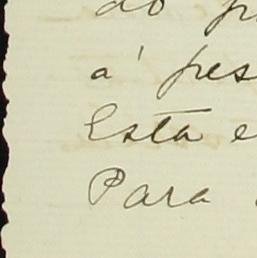 do
á pes
Esta e
Para